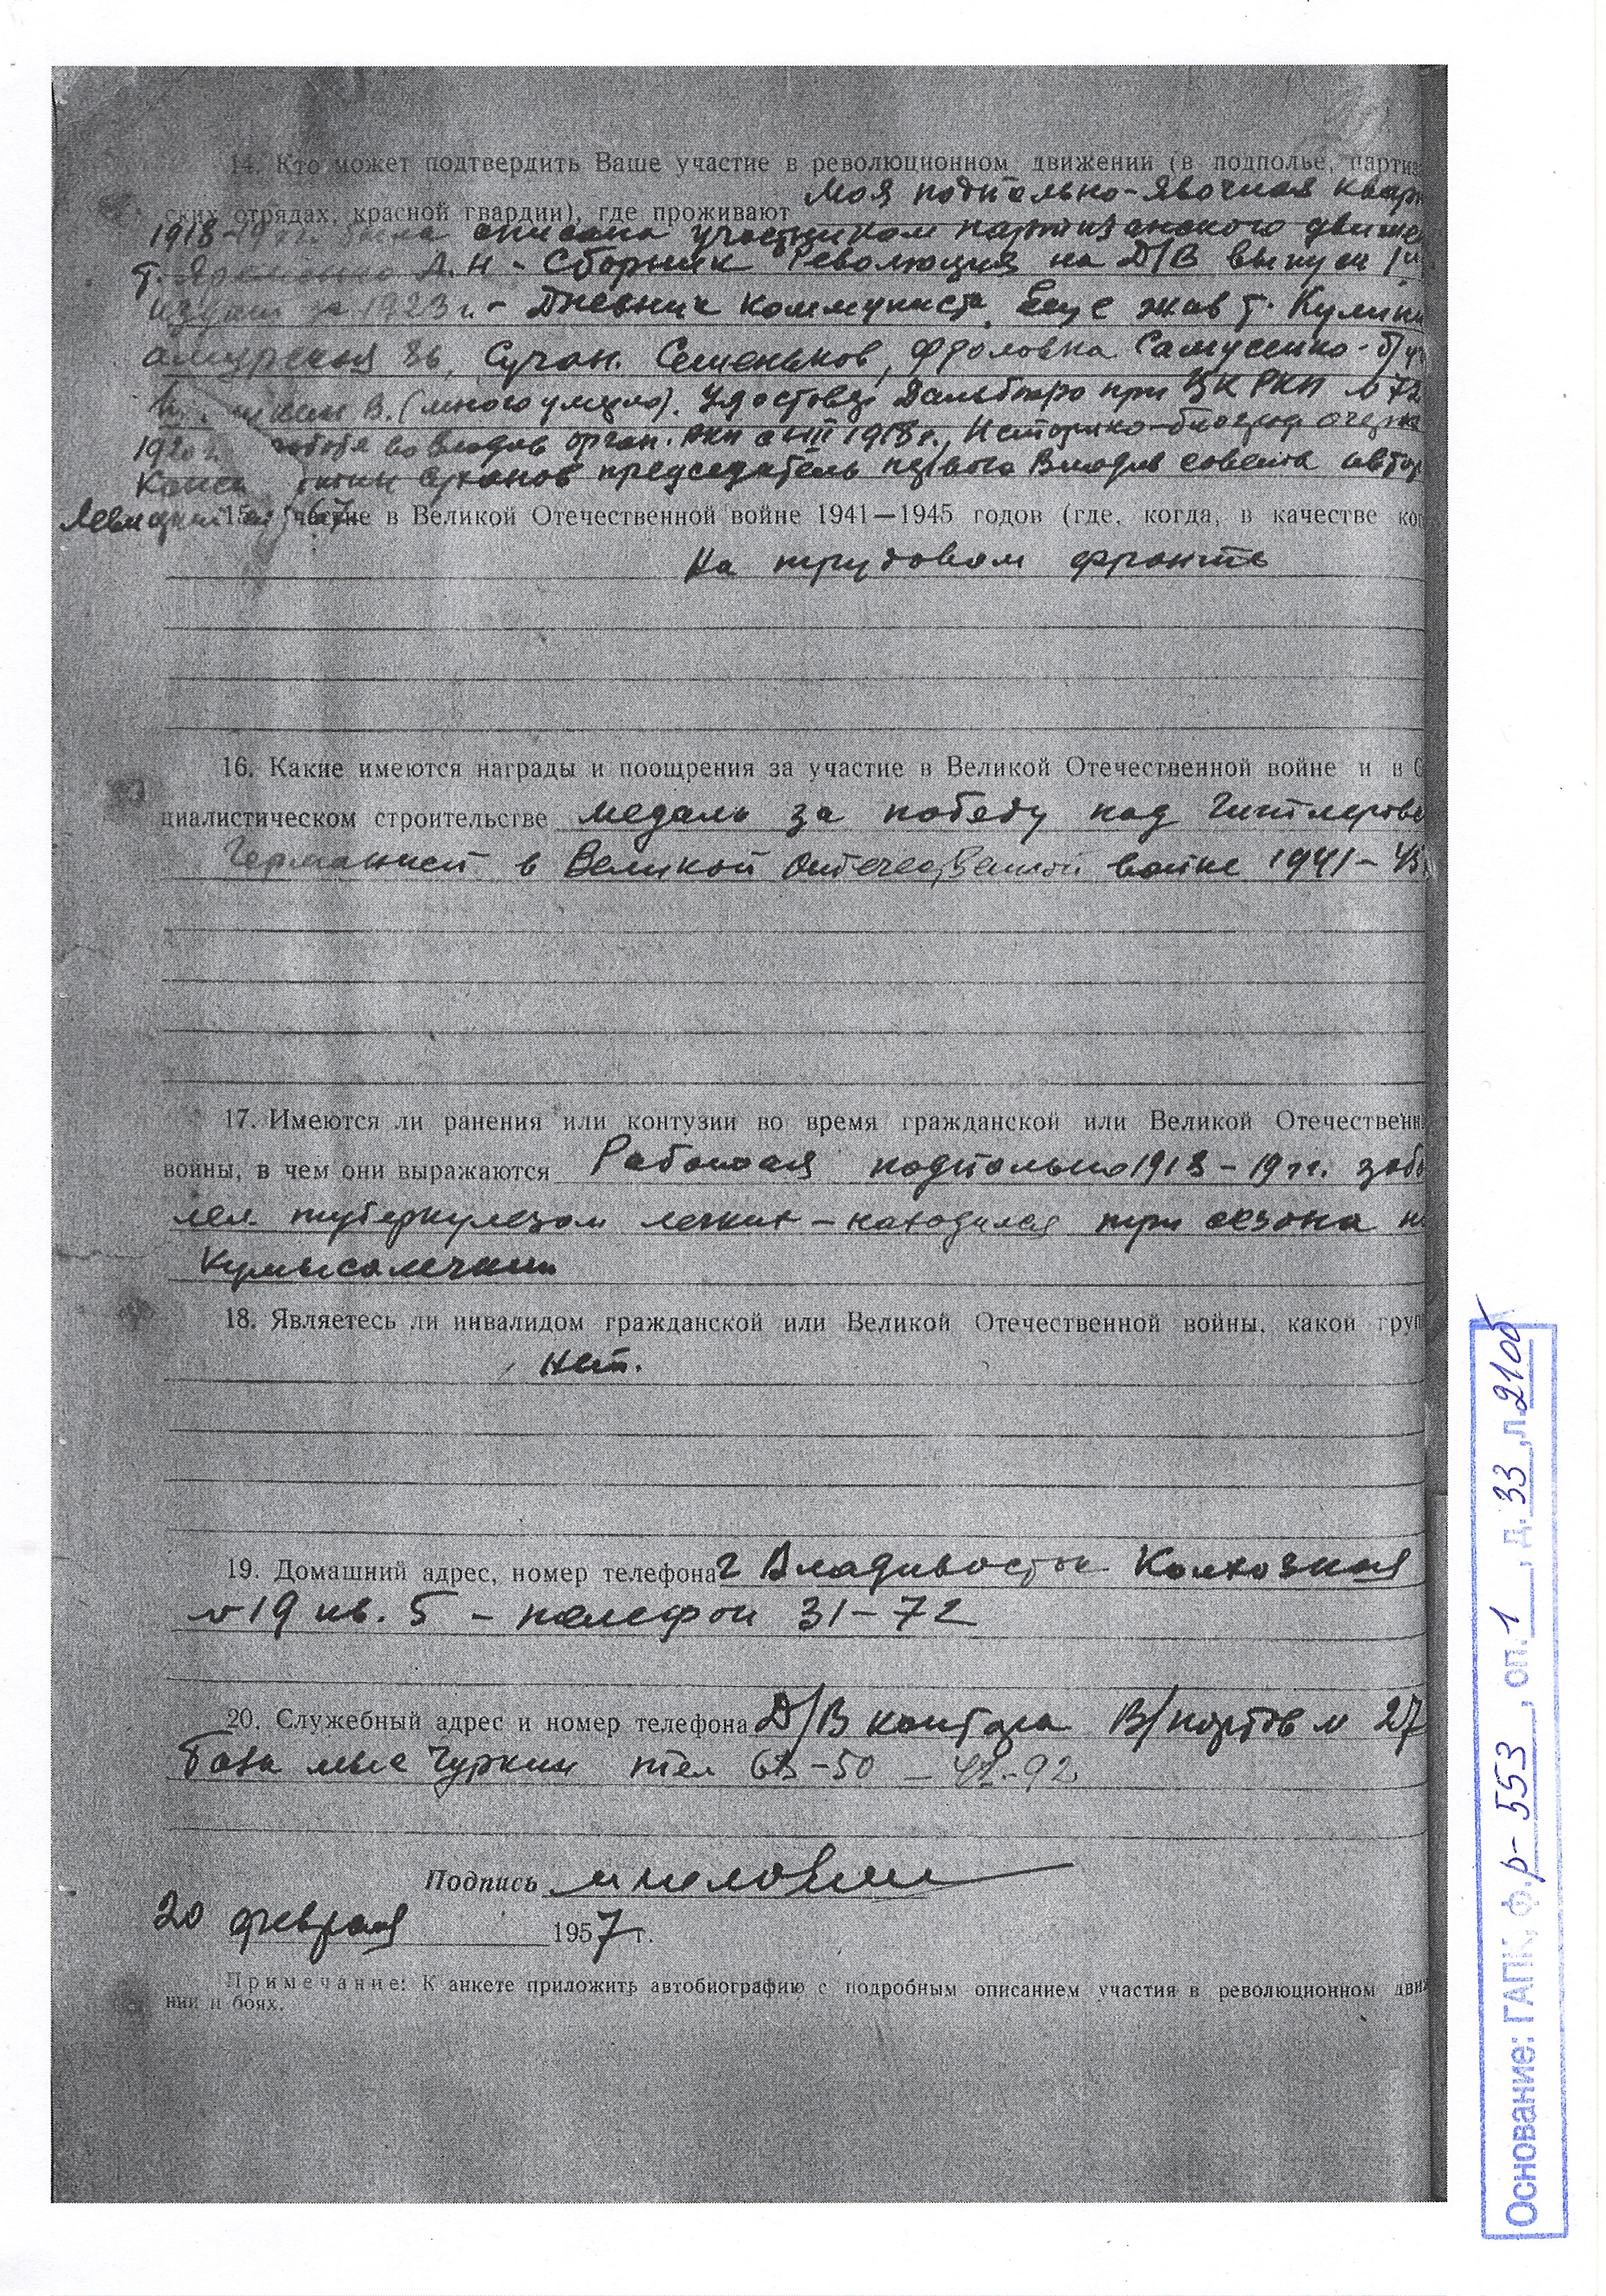 14. Кто может подтвердить Ваше участие в революционном движении (в подполье, партиз
ских отрядах, красной гвардии), где проживают Моя подпольно-явочная кварт
1918-19 гг. была описана участником партизанского движе
т. А.Н - Сборник Революция на Д/В выпуск
издат 1923 г. - Дневник коммуниста. Еще жив т.
амурская 36, Сучан. Семеньков, Фроловка Самусенко-
В. (много умерло). Удостовер Дальбюро при ЦК РКП № 72
1920 г. работе во Владив орган. РКП с III 1918 г., Историко-биограф очерк
Конст Суханов председатель первого Владив совета автор
Левицкий
15. Участие в Великой Отечественной войне 1941—1945 годов (где, когда, в качестве ког
На трудовом фронте
16. Какие имеются награды и поощрения за участие в Великой Отечественной войне и в С
циалистическом строительстве медаль за победу над Гитлерово
Германией в Великой Отечественной войне 1941-45
17. Имеются ли ранения или контузии во время гражданской или Великой Отечественн
войны, в чем они выражаются Работая подпольно 1918-19 гг. забо
лел туберкулезом легких - находился три сезона н
Кумысолечении
18. Являетесь ли инвалидом гражданской или Великой Отечественной войны, какой груп
Нет.
19. Домашний адрес, номер телефона г Владивосток Колхозная
№ 19 кв. 5 - телефон 31-72
20. Служебный адрес и номер телефона Д/В контора В/портов № 27
База мыс Чуркин тел 63-50 - 42-92
Подпись
20 февраля 1957 г.
Примечание: К анкете приложить автобиографию с подробным описанием участия в революционном движ
нии и боях.
Основание: ГАПК, ф. р-553, оп. 1, д. 33, л. 21об